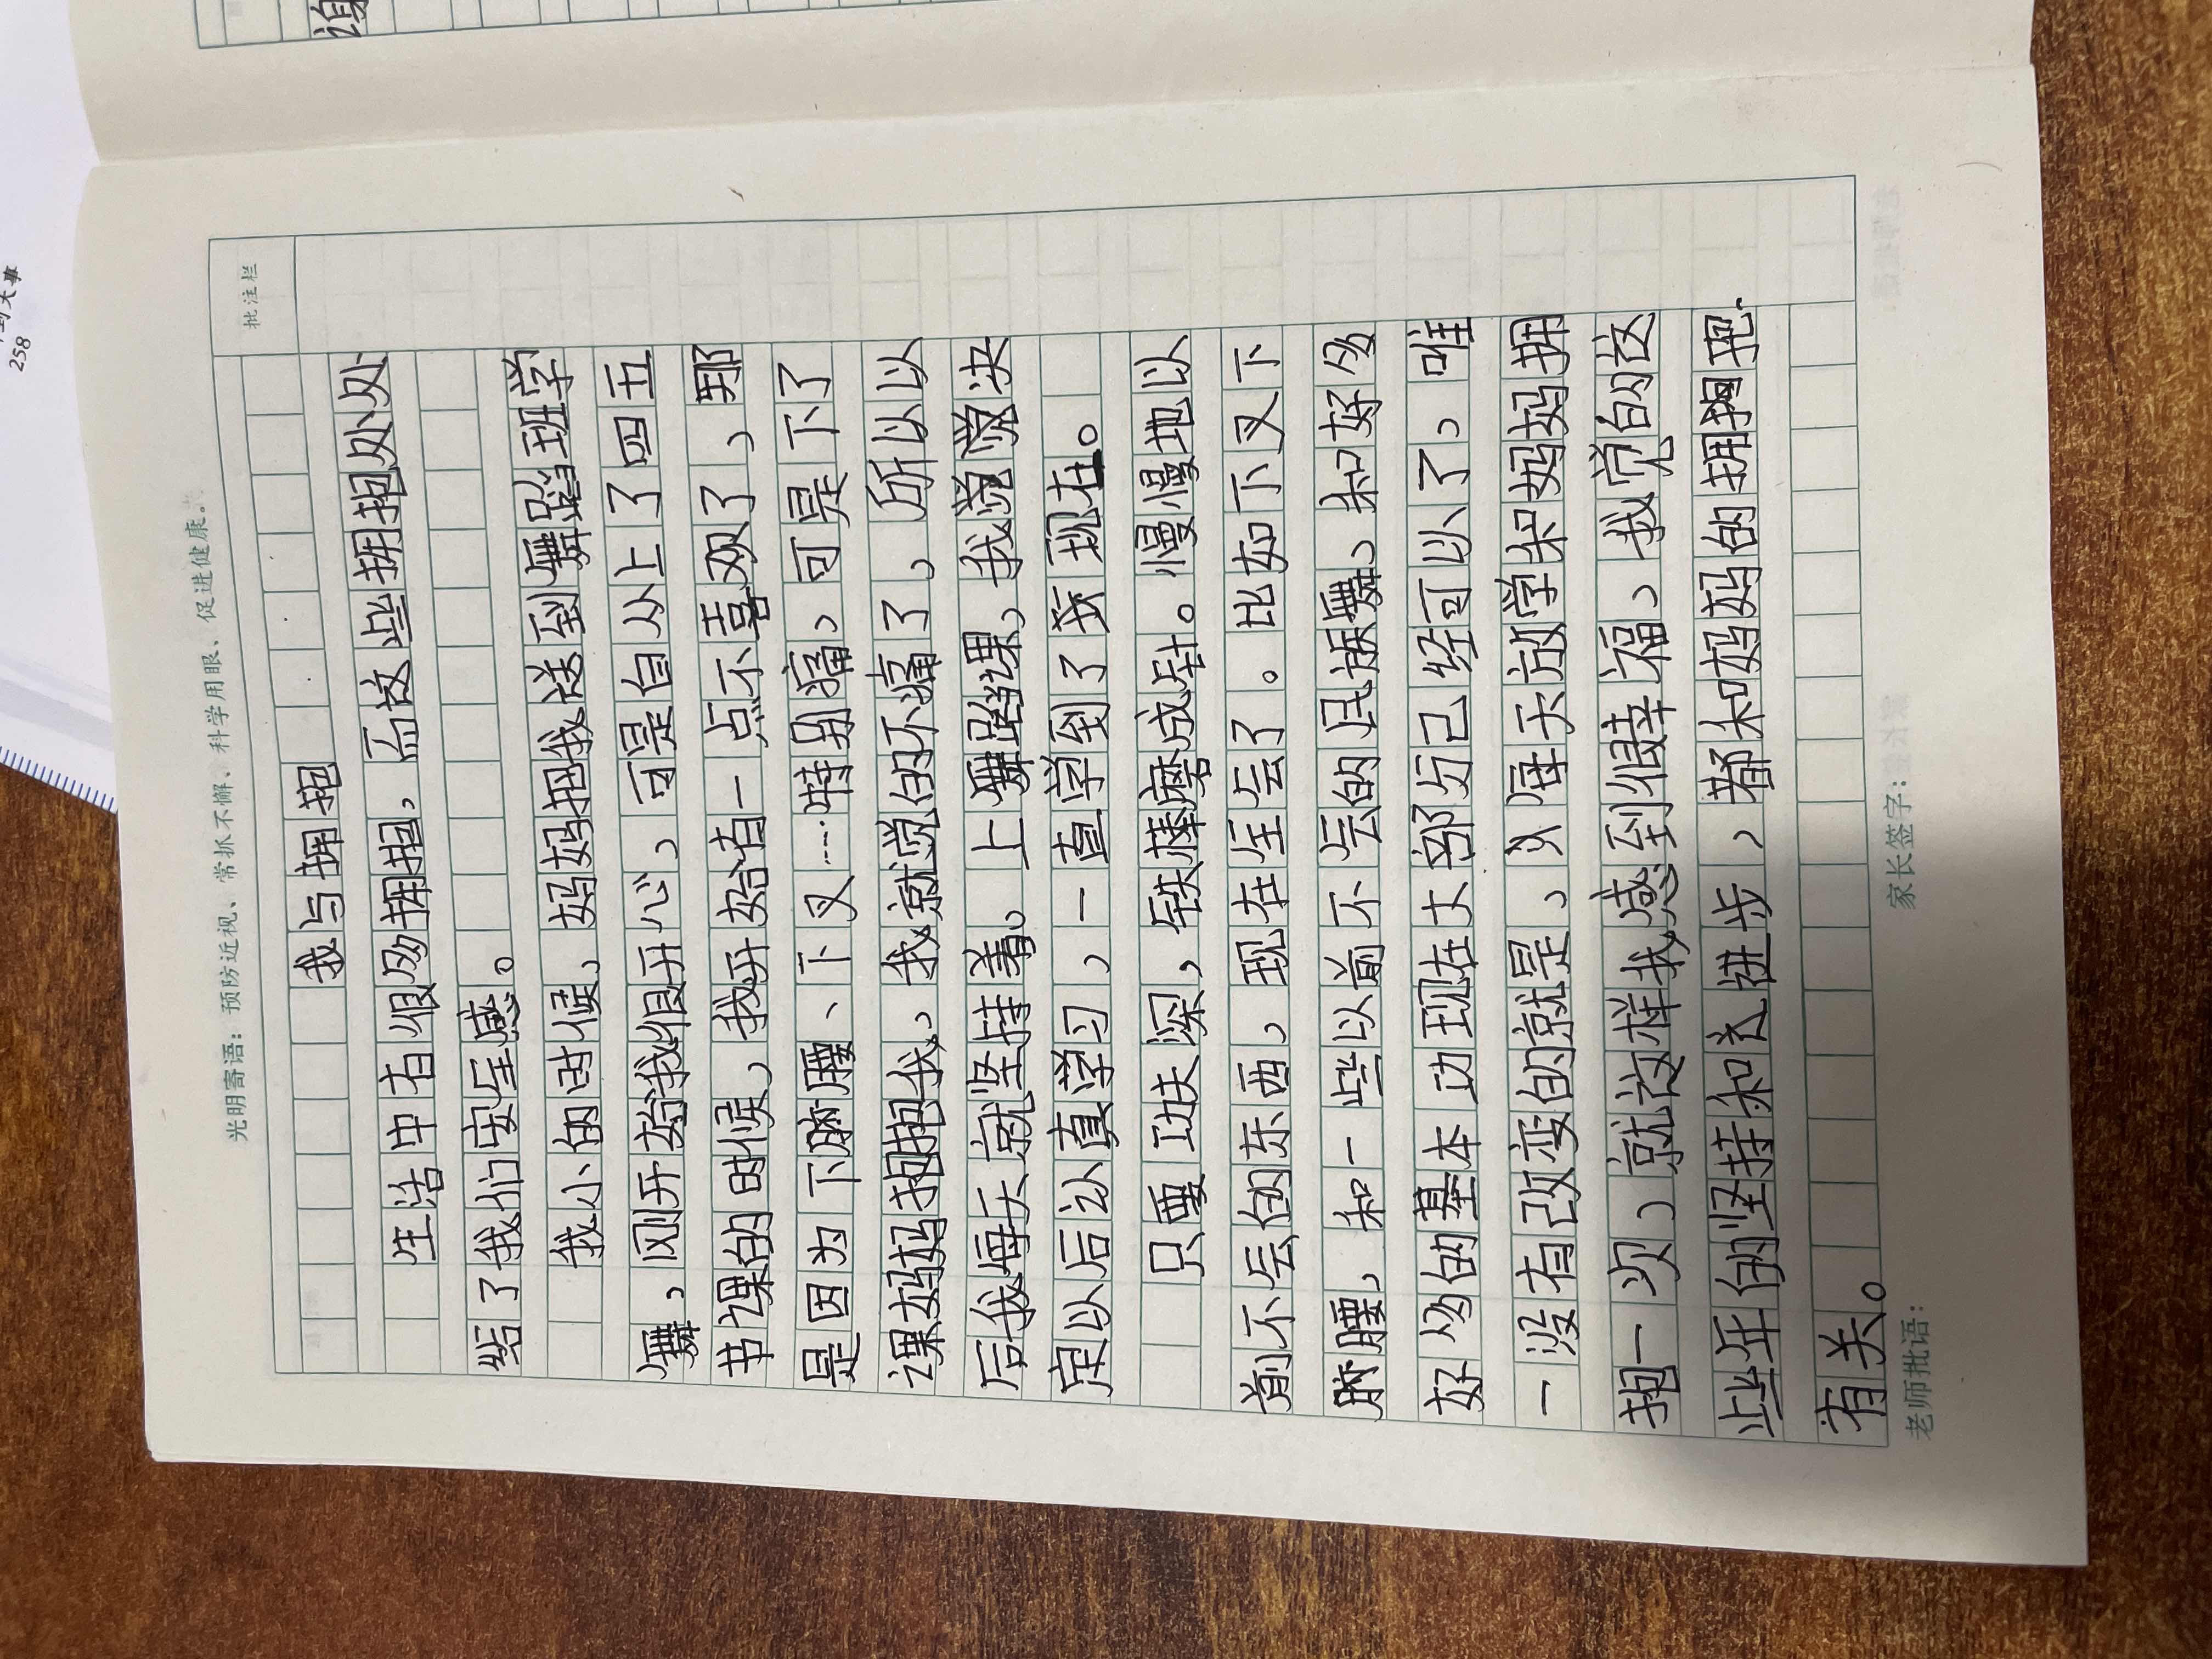 光明寄语：预防近视、常抓不懈、科学用眼、促进健康。
批注栏
我与拥抱
生活中有很多拥抱，而这些拥抱处处
给了我们安全感。
我小的时候，妈妈把我送到舞蹈班学
舞，刚开始我很开心，可是自从上了四五
节课的时候，我开始有一点不喜欢了，那
是因为下胯腰、下叉……特别痛，可是下了
课妈妈抱抱我，我就觉的不痛了，所以以
后我每天就坚持着。上舞蹈课，我觉觉决
定以后认真学习，一直学到了我现在。
只要功夫深，铁棒磨成针。慢慢地以
前不会的东西，现在全会了。比如下叉下
胯腰，和一些以前不会的民族舞，和好多
好多的基本功现在大部分已经可以了，唯
一没有改变的就是，每天放学和妈妈拥
抱一次，就这样我感到很幸福，我觉的这
些年的坚持和进步，都和妈妈的拥抱
有关。
老师批语：
家长签字：
258